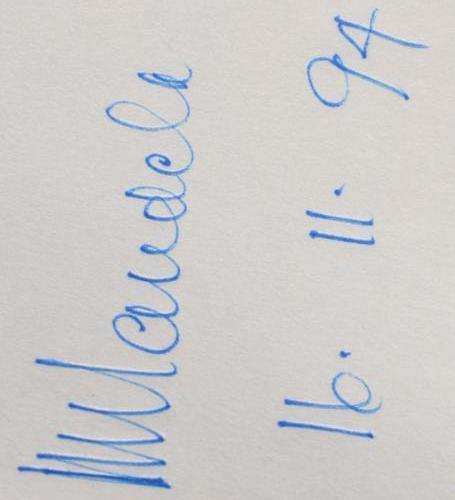 NMandela
16.11.94